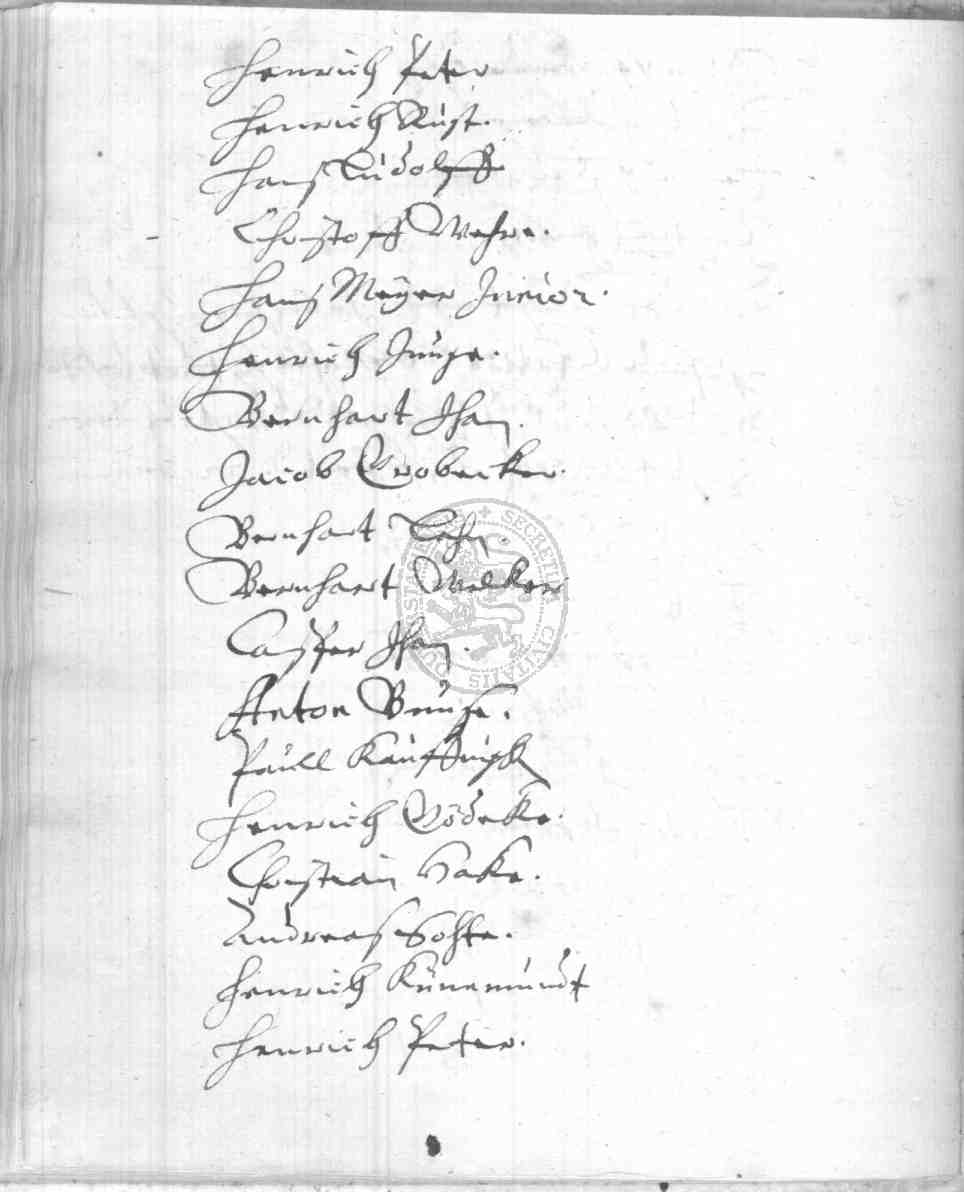 Henrich Peter
Henrich Rust.
Hans Ludolff
Christoff Wehre.
Hans Meyer Junior.
Henrich Junge.
Bernhart Jhan.
Jacob Crobecker.
Bernhart Lehn.
Bernhart Welcker
Casper Jhan.
Anton Bruse.
Paull
Henrich Gödeke.
Christian Hake.
Andreas Bohte.
Henrich Künemundt
Henrich Peter.
SECRETUM CIVITATIS